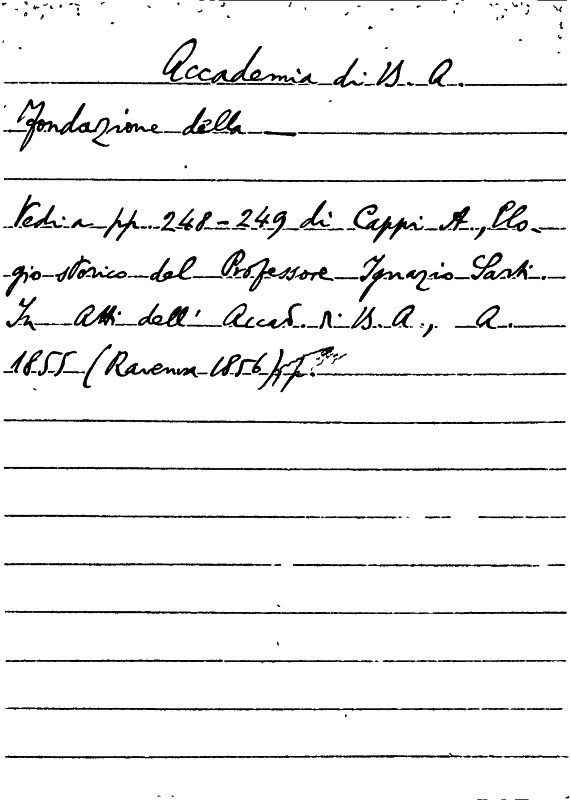 Accademia di B. A.
Fondazione della —
Vedi a pp. 248-249 di Cappi A., Elo-
gio storico del Professore Ignazio Sarti.
In Atti dell' Accad. di B. A., A.
1855 (Ravenna 1856) pp.